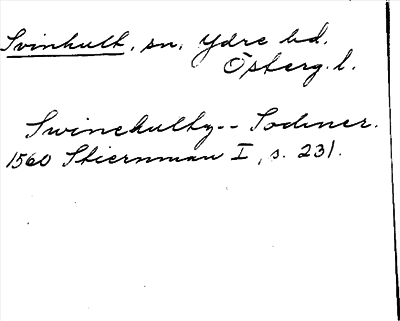 Svinhult, sn. Ydre hd.
Österg. l.
Swinehulthz-- Sochner.
1560 Stiernman I, s. 231.